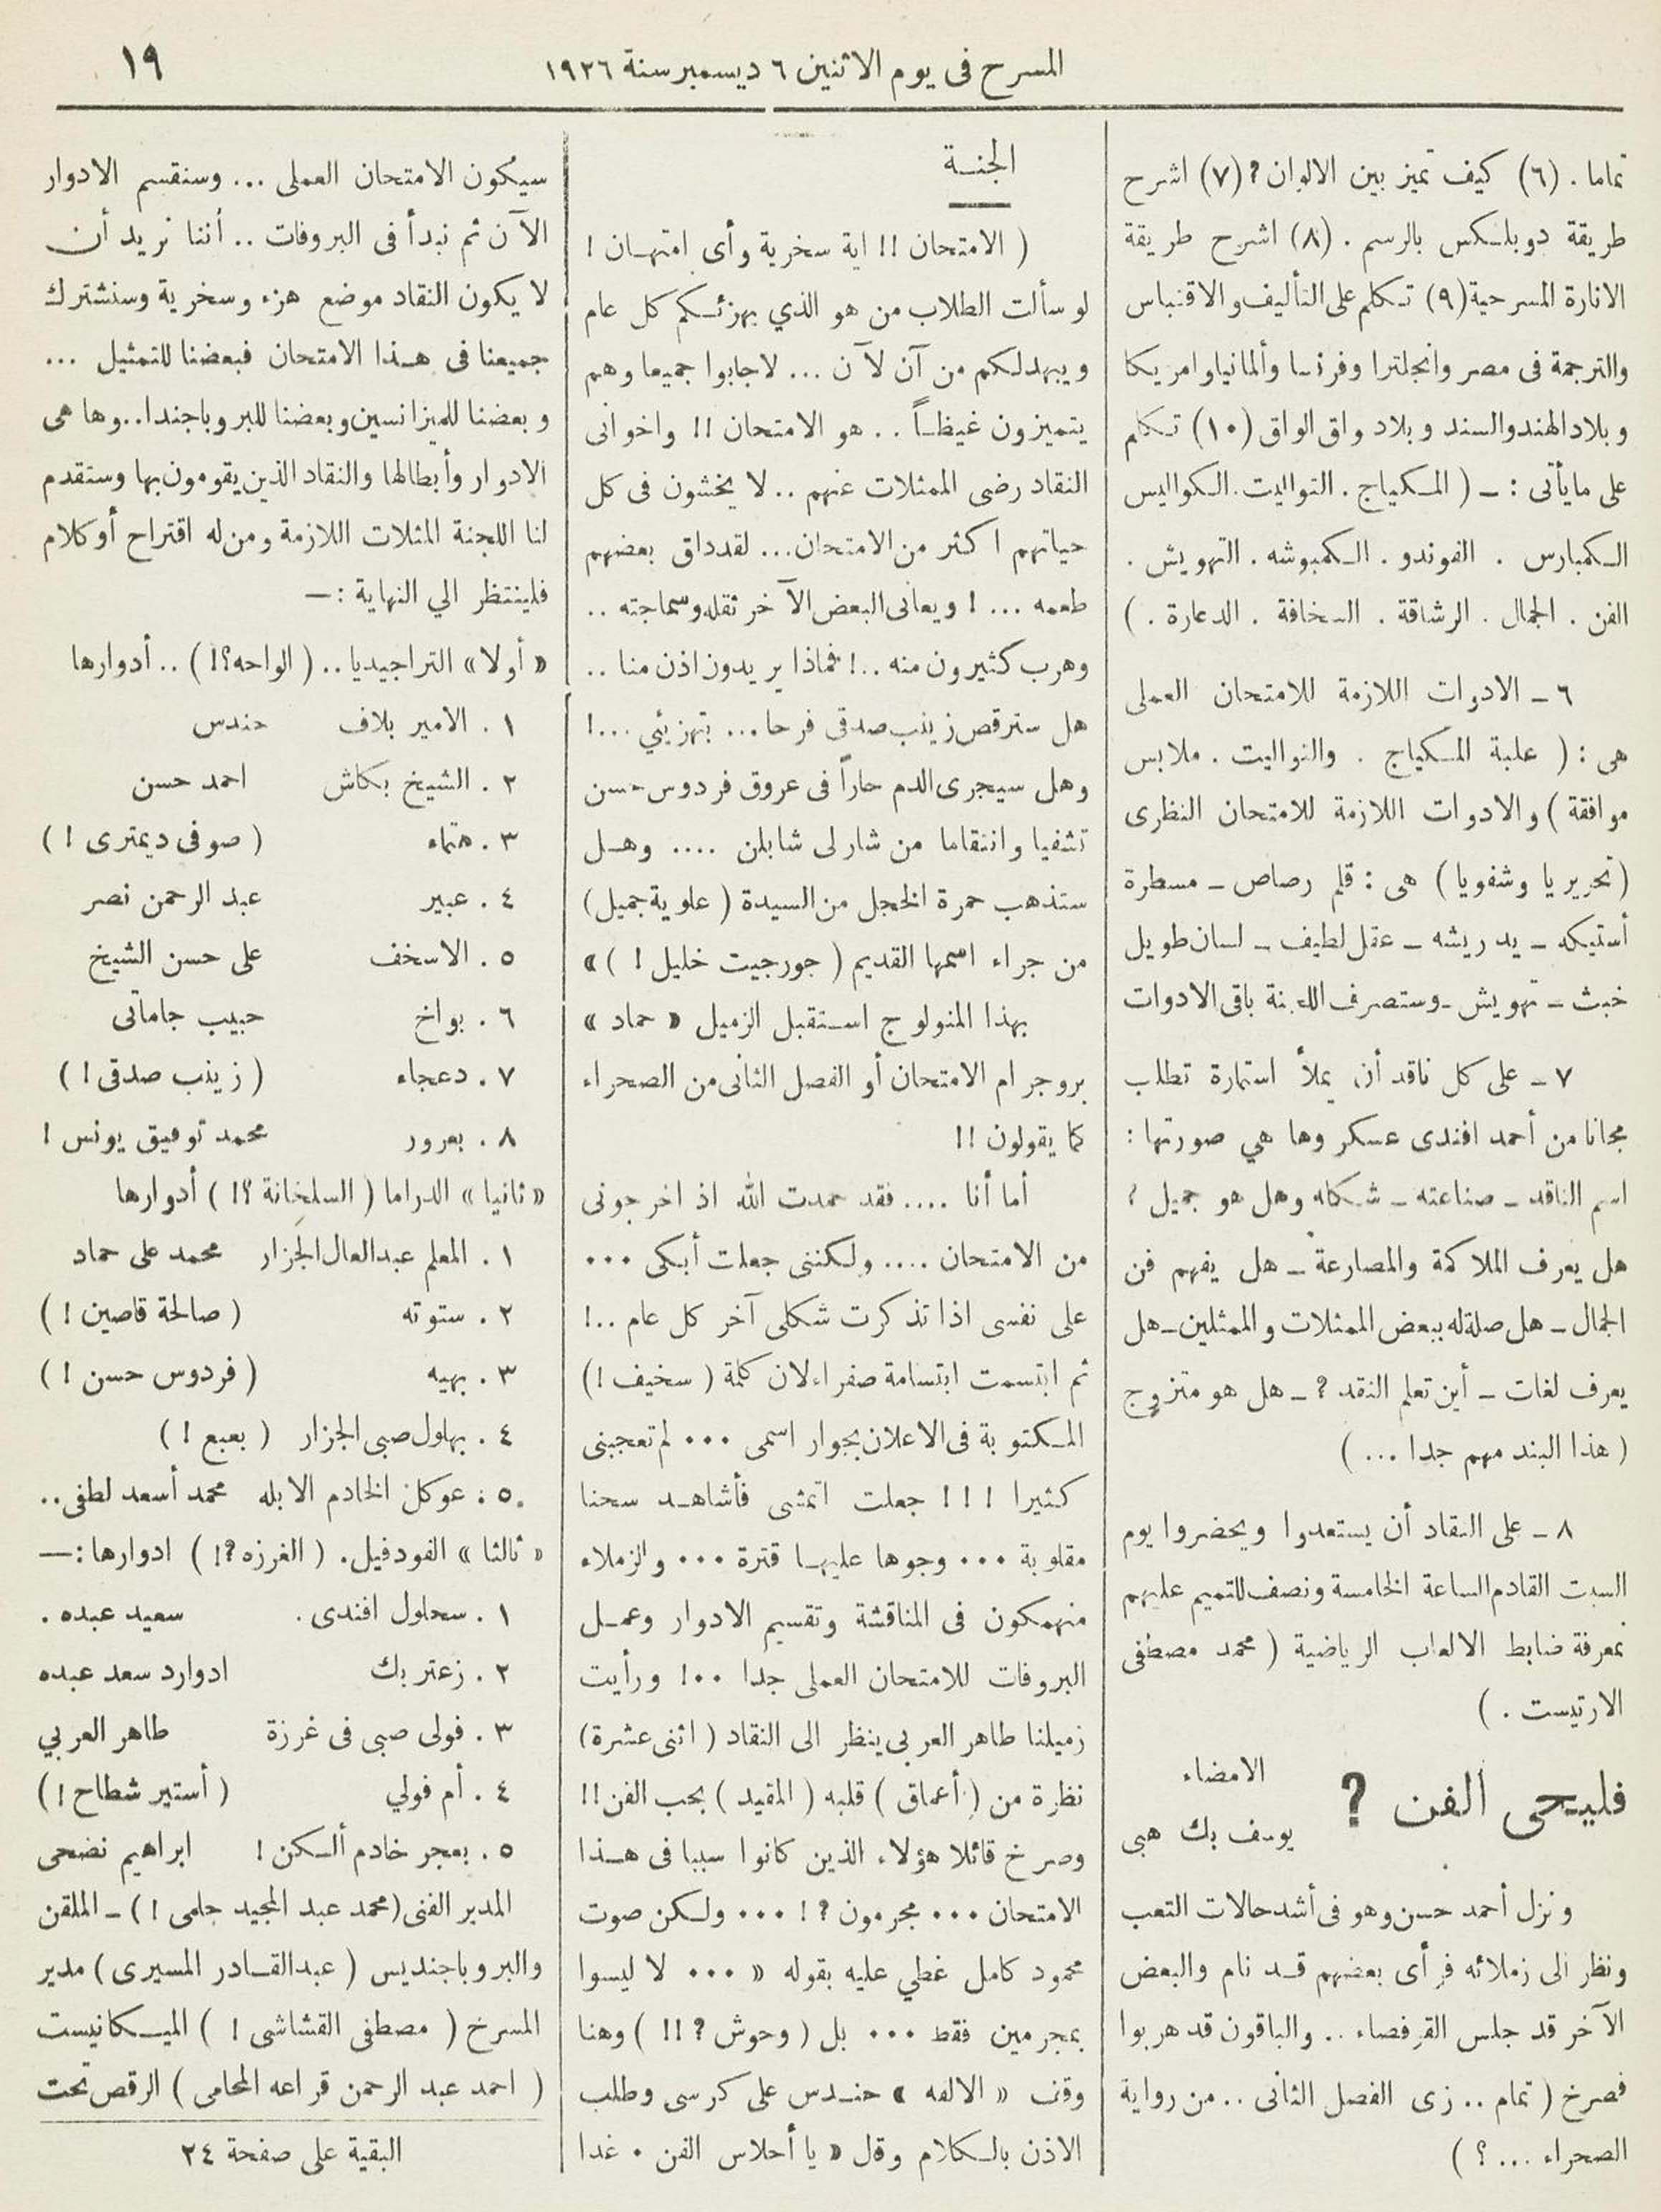 المسرح فى يوم الاثنين ٦ ديسمبر سنة ١٩٢٦
١٩
تماما . (٦) كيف تميز بين الالوان ? (٧) اشرح
طريقة دوبلكس بالرسم . (٨) اشرح طريقة
الانارة المسرحية (٩) تكلم على التأليف والاقتباس
والترجمة فى مصر وانجلترا وفرنسا وألمانيا وامريكا
وبلاد الهند والسند وبلاد واق الواق (١٠) تكلم
على مايأتى : ـ ( المكياج . التواليت . الكواليس
الكمبارس . الفوندو . الكمبوشه . التهويش .
الفن . الجمال . الرشاقة . السخافة . الدعارة . )
٦ ـ الادوات اللازمة للامتحان العملى
هى : ( علبة المكياج . والتواليت . ملابس
موافقة ) والادوات اللازمة للامتحان النظرى
(تحريريا وشفويا ) هى : قلم رصاص ـ مسطرة
أستيكه ـ يد ريشه ـ عقل لطيف ـ لسان طويل
خبث ـ تهويش ـ وستصرف اللجنة باقى الادوات
٧ ـ على كل ناقد أن يملأ استمارة تطلب
مجانا من أحمد افندى عسكر وها هي صورتها :
اسم الناقد ـ صناعته ـ شكله وهل هو جميل ؟
هل يعرف الملاكمة والمصارعة ـ هل يفهم فن
الجمال ـ هل صلة له ببعض الممثلات والممثلين ـ هل
يعرف لغات ـ أين تعلم النقد ? ـ هل هو متزوج
( هذا البند مهم جدا ... )
٨ ـ على النقاد أن يستعدوا ويحضروا يوم
السبت القادم الساعة الخامسة ونصف للتميم عليهم
بمعرفة ضابط الالعاب الرياضية ( محمد مصطفى
الارتيست . )
فليحى الفن ?
الامضاء
يوسف بك هبى
ونزل أحمد حسن وهو فى أشد حالات التعب
ونظر الى زملائه فرأى بعضهم قد نام والبعض
الآخر قد جلس القرفصاء .. والباقون قد هربوا
فصرخ ( تمام .. زى الفصل الثانى .. من رواية
الصحراء ... ؟ )
الجنة
( الامتحان !! اية سخرية وأى امتهان !
لو سألت الطلاب من هو الذي يهزئكم كل عام
ويبهدلكم من آن لآن ... لاجابوا جميعا وهم
يتميزون غيظاً .. هو الامتحان !! واخوانى
النقاد رضى الممثلات عنهم .. لا يخشون فى كل
حياتهم اكثر من الامتحان ... لقد داق بعضهم
طعمه ... ! ويعانى البعض الآخر ثقله وسماجته ..
وهرب كثيرون منه ..! فماذا يريدون اذن منا ..
هل سترقص زينب صدقى فرحا ... بتهزيئي ...!
وهل سيجرى الدم حاراً فى عروق فردوس حسن
تشفيا وانتقاما من شارلى شابلن .... وهل
ستذهب حمرة الخجل من السيدة ( علوية جميل )
من جراء اسمها القديم ( جورجيت خليل ! ) »
بهذا المنولوج استقبل الزميل « حماد »
بروجرام الامتحان أو الفصل الثانى من الصحراء
كما يقولون !!
أما أنا .... فقد حمدت الله اذ اخرجونى
من الامتحان .... ولكننى جعلت أبكى ...
على نفسى اذا تذكرت شكلى آخر كل عام ..!
ثم ابتسمت ابتسامة صفراء لان كلمة ( سخيف ! )
المكتوبة فى الاعلان بجوار اسمى ... لم تعجبنى
كثيرا ! ! ! جعلت اتمشى فأشاهد سحنا
مقلوبة ... وجوها عليها قترة ... والزملاء
منهمكون فى المناقشة وتقسيم الادوار وعمل
البروفات للامتحان العملى جدا ..! ورأيت
زميلنا طاهر العربى ينظر الى النقاد ( اثنى عشرة )
نظرة من ( أعماق ) قلبه ( المقيد ) بحب الفن !!
وصرخ قائلا هؤلاء الذين كانوا سببا فى هذا
الامتحان ... مجرمون ? ! ... ولكن صوت
محمود كامل غطي عليه بقوله « ... لا ليسوا
بمجرمين فقط ... بل ( وحوش ? !! ) وهنا
وقف « الالفه » حندس على كرسى وطلب
الاذن بالكلام وقال « يا أحلاس الفن . غدا
سيكون الامتحان العملى ... وسنقسم الادوار
الآن ثم نبدأ فى البروفات .. أننا نريد أن
لا يكون النقاد موضع هزء وسخرية وسنشترك
جميعنا فى هذا الامتحان فبعضنا للتمثيل ...
وبعضنا للميزانسين وبعضنا للبروباجندا .. وها هى
الادوار وأبطالها والنقاد الذين يقومون بها وستقدم
لنا اللجنة المثلات اللازمة ومن له اقتراح أو كلام
فلينتظر الي النهاية : —
« أولا » التراجيديا .. ( الواحه ؟! ) .. أدوارها
١ . الامير بلاف حندس
٢ . الشيخ بكاش احمد حسن
٣ . هتماء ( صوفى ديمترى ! )
٤ . عبير عبد الرحمن نصر
٥ . الاسخف على حسن الشيخ
٦ . بواخ حبيب جاماتى
٧ . دعجاء ( زينب صدقى ! )
٨ . بعرور محمد توفيق يونس !
« ثانيا » الدراما ( السلخانة ؟! ) أدوارها
١ . المعلم عبدالعال الجزار محمد على حماد
٢ . ستوته ( صالحة قاصين ! )
٣ . بهيه ( فردوس حسن ! )
٤ . بهلول صبى الجزار ( بعبع ! )
٥ . عوكل الخادم الابله محمد أسعد لطفى ..
« ثالثا » الفودفيل . ( الغرزه ?! ) ادوارها : —
١ . سحلول افندى . سعيد عبده .
٢ . زعتر بك ادوارد سعد عبده
٣ . فولى صبى فى غرزة طاهر العربي
٤ . أم فولي ( أستير شطاح ! )
٥ . بعجر خادم ألسكن ! ابراهيم نضحى
المدير الفنى ( محمد عبد المجيد حلمى ! ) ـ الملقن
والبروباجنديس ( عبدالقادر المسيرى ) مدير
المسرخ ( مصطفى القشاشى ! ) الميكانيست
( احمد عبد الرحمن قراعه المحامى ) الرقص تحت
البقية على صفحة ٢٤